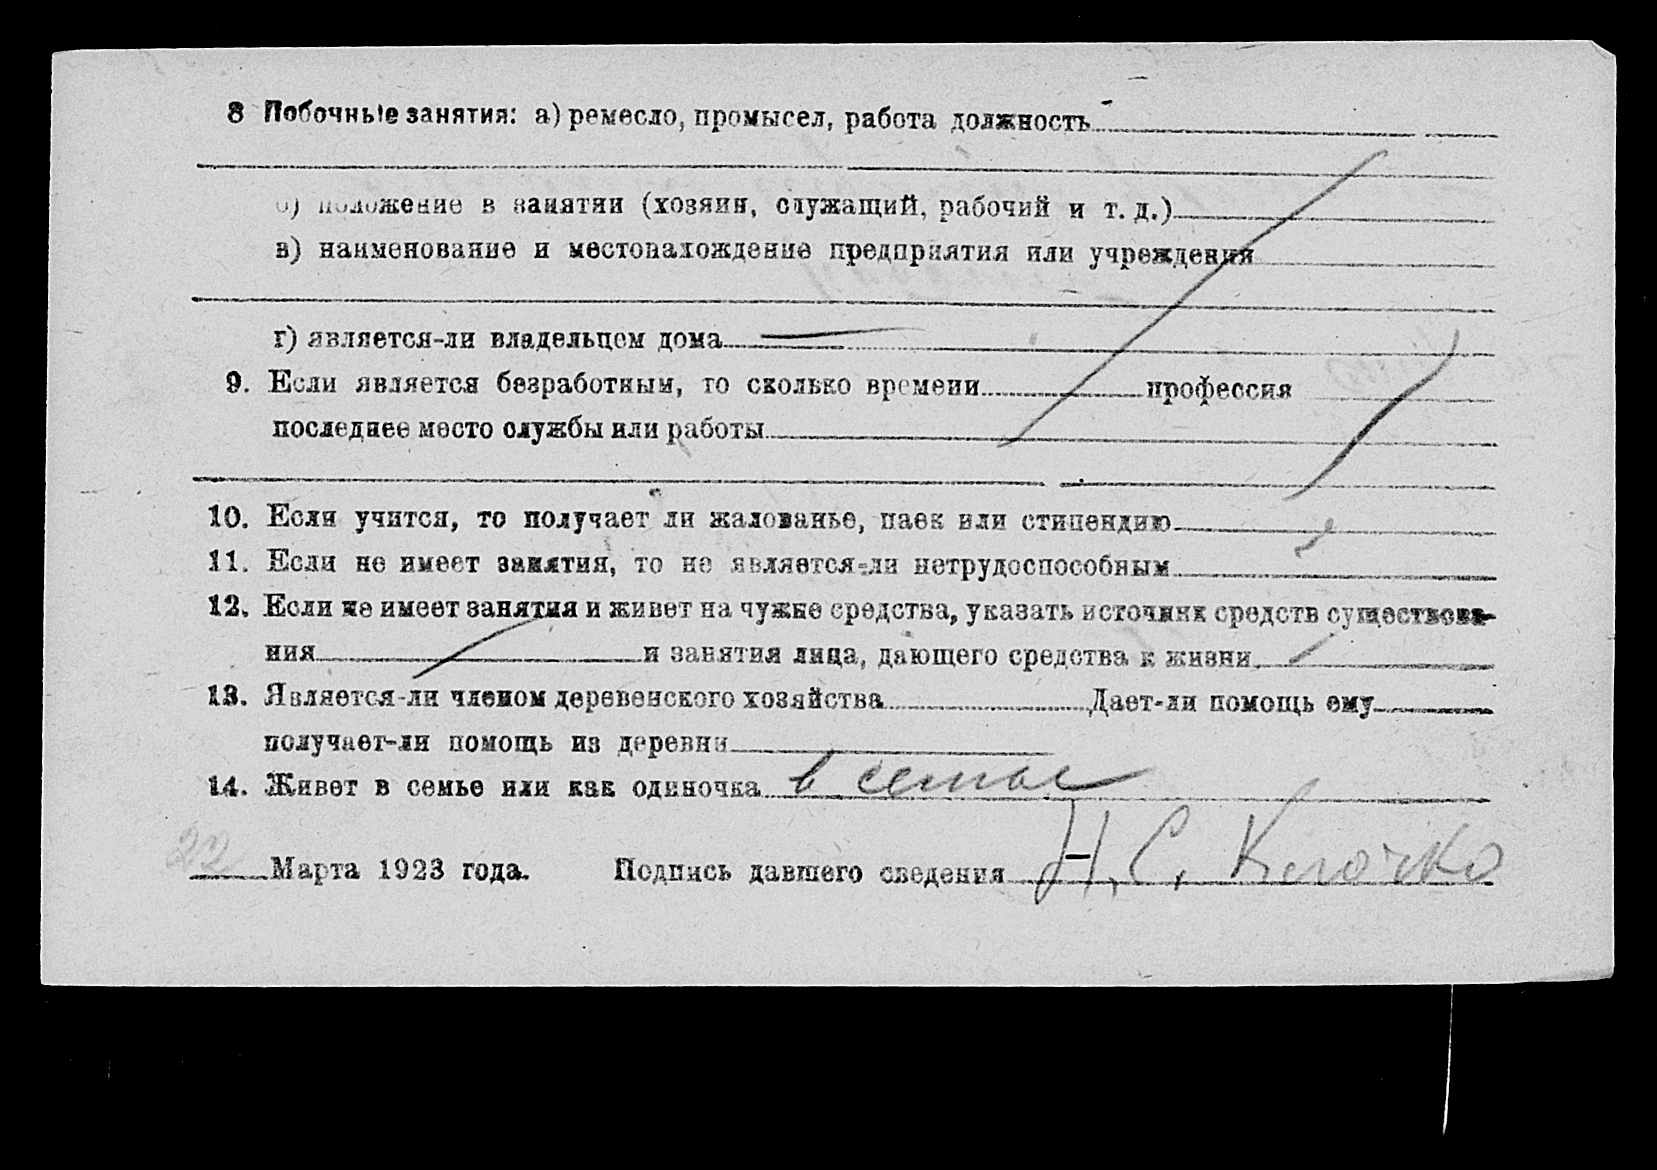 8 Побочные занятия: а) ремесло, промысел, работа должность
б) положение в занятии (хозяин, служащий, рабочий и т. д.)
в) наименование и местонахождение предприятия или учреждения
г) является-ли владельцем дома —
9. Если является безработным, то сколько времени профессия
последнее место службы или работы
10. Если учится, то получает ли жалованье, паек или стипендию
11. Если не имеет занятия, то не является-ли нетрудоспособным
12. Если не имеет занятия и живет на чужие средства, указать источник средств существова-
ния и занятия лица, дающего средства к жизни.
13. Является-ли членом деревенского хозяйства Дает-ли помощь ему
получает-ли помощь из деревни
14. Живет в семье или как одиночка в семье
22 Марта 1923 года. Подпись давшего сведения Н. С. Клочко